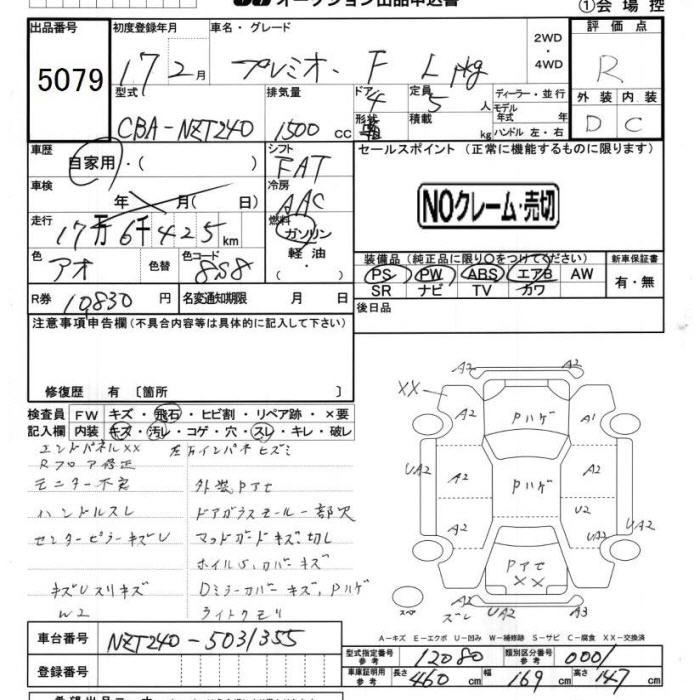 オークション出品申込書
①会場控
出品番号
5079
初度登録年月
17 2月
車名・グレード
プレミオ F Lpkg
2WD
・
4WD
評価点
R
外装 内装
D C
型式
CBA-NZT240
排気量
1500 cc
ドア
4
形状
定員
5 人
積載
kg
ディーラー・並行
モデル
年式 年
ハンドル 左・右
車歴
自家用・( )
シフト
FAT
セールスポイント (正常に機能するものに限ります)
NOクレーム・売切
車検
年 月( 日)
冷房
AAC
走行
17万6千425km
燃料
ガソリン
軽油
・( )
色
アオ
色替
色コード
8S8
装備品(純正品に限り○をつけてください)
PS PW ABS エアB AW
SR ナビ TV カワ
新車保証書
有・無
R券 10830 円
名変通知期限 月 日
後日品
注意事項申告欄(不具合内容等は具体的に記入して下さい)
修復歴 有 〔箇所 〕
検査員 FW キズ・飛石・ヒビ割・リペア跡・×要
記入欄 内装 キズ・汚レ・コゲ・穴・スレ・キレ・破レ
エンドパネルXX 左右インパネヒズミ
Rフロア修正
モニター不良 外装Pアセ
ハンドルスレ ドアガラスモール一部欠
センターピラーキズU マッドガードキズ、切レ
ホイルS、カバーキズ
キズUスリキズ Dミラーカバーキズ、Pハゲ
W2 ライトクモリ
A2 A2
XX
A2 Pハゲ A1
UA2 A2 Pハゲ A2 U2 UA2
A2 UA2
Pアセ
XX
スペア
A2
ズレ
UA2 A2 A3
A-キズ E-エクボ U-凹み W-補修跡 S-サビ C-腐食 XX-交換済
車台番号 NZT240-5031355
型式指定番号
参考
12080
類別区分番号
参考
0001
登録番号
車庫証明用
参考
長さ 460 cm 幅 169 cm 高さ 147 cm